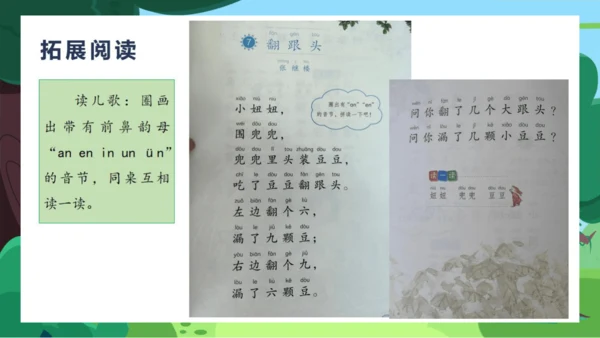 拓展阅读
读儿歌：圈画
出带有前鼻韵母
“an en in un ün”
的音节，同桌互相
读一读。
7 翻跟头
张继楼
圈出有“an”“en”
的音节，拼读一下吧！
小妞妞，
围兜兜，
兜兜里头装豆豆，
吃了豆豆翻跟头。
左边翻个六，
漏了九颗豆；
右边翻个九，
漏了六颗豆。
问你翻了几个大跟头？
问你漏了几颗小豆豆？
读一读
妞妞 兜兜 豆豆